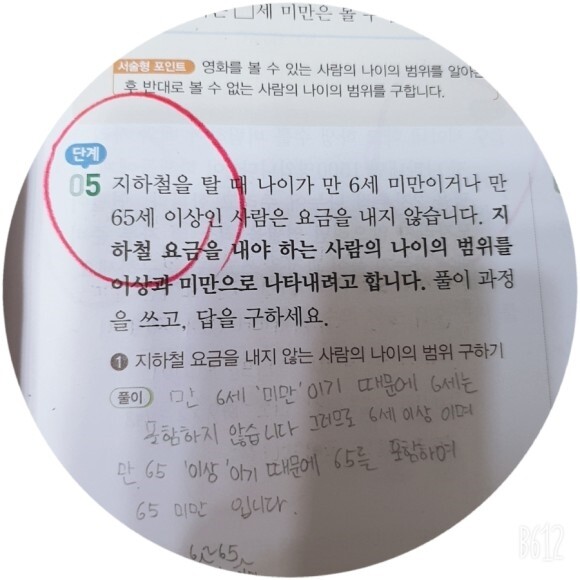 세 미만은 볼 수
서술형 포인트 영화를 볼 수 있는 사람의 나이의 범위를 알아
후 반대로 볼 수 없는 사람의 나이의 범위를 구합니다.
단계
05 지하철을 탈 때 나이가 만 6세 미만이거나 만
65세 이상인 사람은 요금을 내지 않습니다. 지
하철 요금을 내야 하는 사람의 나이의 범위를
이상과 미만으로 나타내려고 합니다. 풀이 과정
을 쓰고, 답을 구하세요.
❶ 지하철 요금을 내지 않는 사람의 나이의 범위 구하기
풀이 만 6세 '미만'이기 때문에 6세는
포함하지 않습니다 그러므로 6세 이상 이며
만 65 '이상'이기 때문에 65를 포함하며
65 미만 입니다.
6~65~
B612